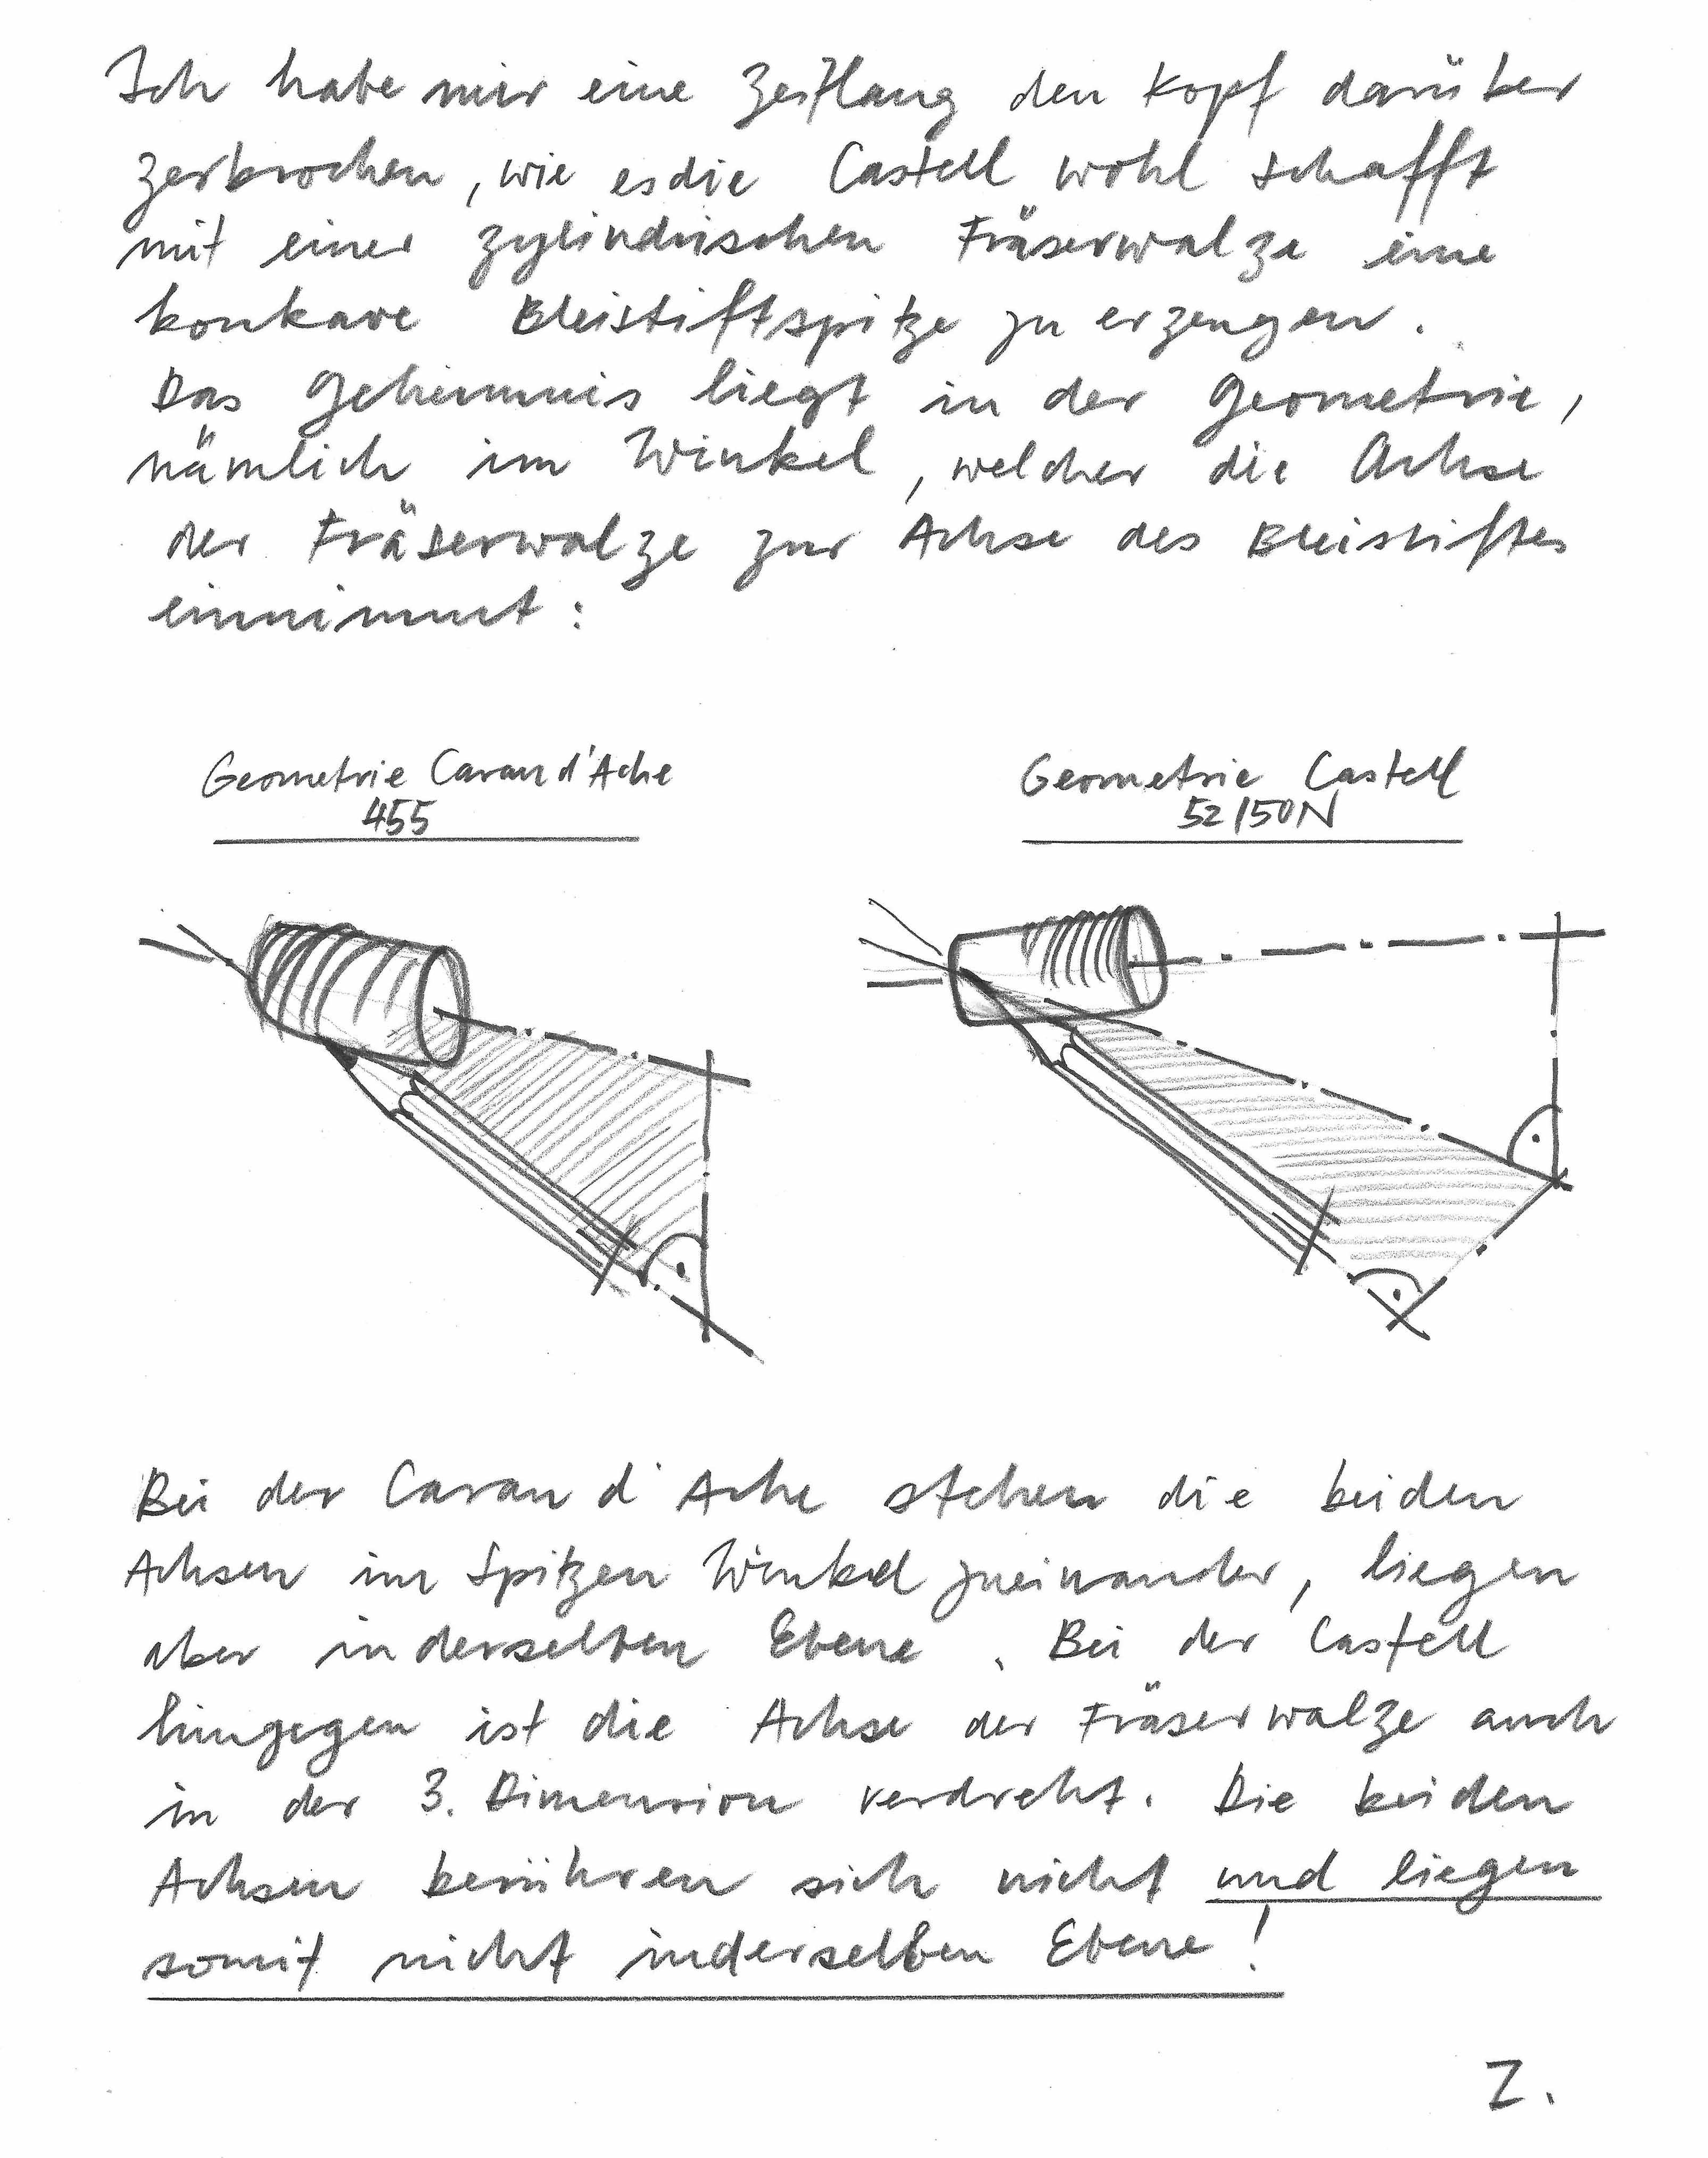 Ich habe mir eine Zeitlang den Kopf darüber
zerbrochen, wie es die Castell wohl schafft
mit einer zylindrischen Fräserwalze eine
konkave Bleistiftspitze zu erzeugen.
Das Geheimnis liegt in der Geometrie,
nämlich im Winkel, welcher die Achse
der Fräserwalze zur Achse des Bleistiftes
einnimmt:
Geometrie Caran d'Ache
455
Geometrie Castell
52/50N
Bei der Caran d'Ache stehen die beiden
Achsen im Spitzen Winkel zueinander, liegen
aber in derselben Ebene. Bei der Castell
hingegen ist die Achse der Fräserwalze auch
in der 3. Dimension verdreht. Die beiden
Achsen berühren sich nicht und liegen
somit nicht in derselben Ebene!
Z.